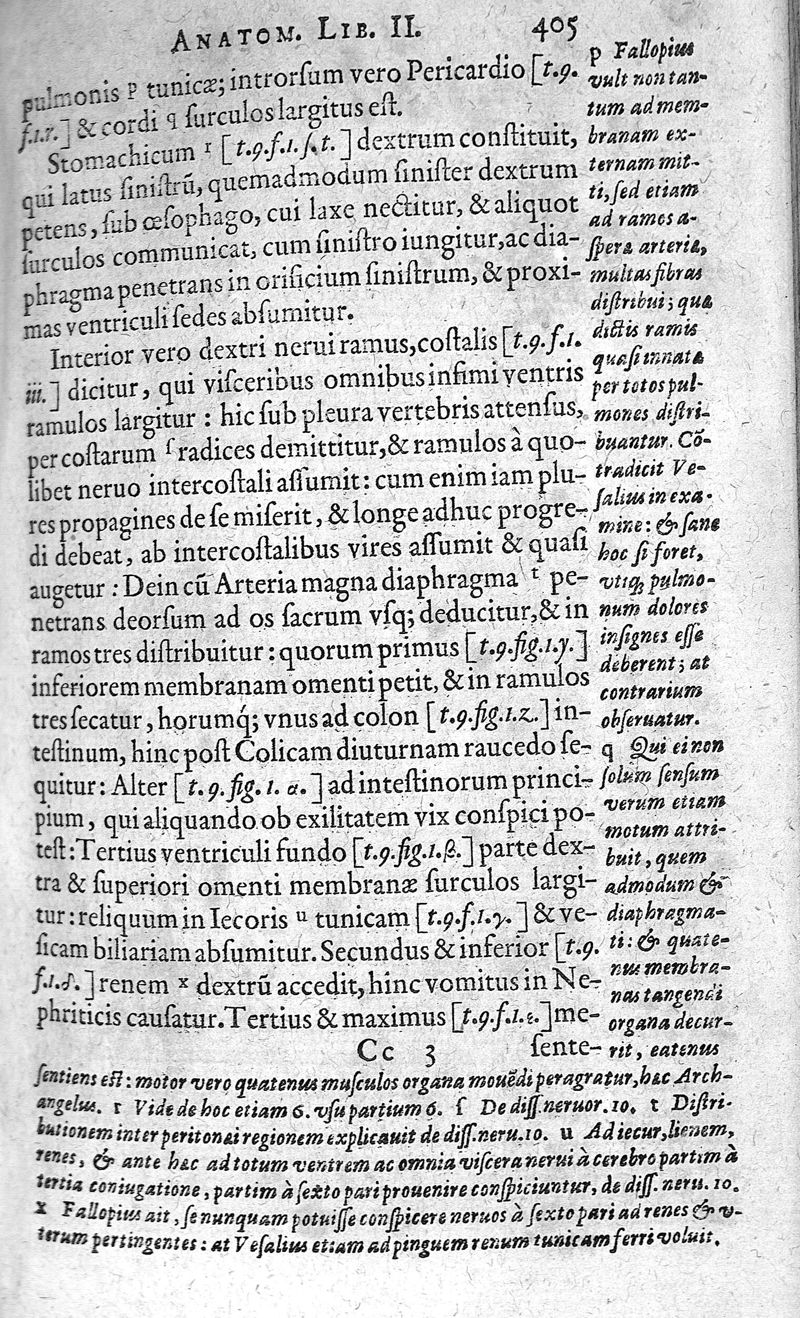 ANATOM. LIB. II. 405
pulmonis p tunicæ; introrſum vero Pericardio [t.9.
f.1.r.] & cordi q ſurculos largitus eſt.
Stomachicum r [t.9.f.1.ſ.t.] dextrum conſtituit,
qui latus ſiniſtrũ, quemadmodum ſiniſter dextrum
petens, ſub œſophago, cui laxe nectitur, & aliquot
ſurculos communicat, cum ſiniſtro iungitur, ac dia-
phragma penetrans in orificium ſiniſtrum, & proxi-
mas ventriculi ſedes abſumitur.
Interior vero dextri nerui ramus, coſtalis [t.9.f.1.
iii.] dicitur, qui viſceribus omnibus infimi ventris
ramulos largitur: hic ſub pleura vertebris attenſus,
per coſtarum ſ radices demittitur, & ramulos à quo-
libet neruo intercoſtali aſſumit: cum enim iam plu-
res propagines de ſe miſerit, & longe adhuc progre-
di debeat, ab intercoſtalibus vires aſſumit & quaſi
augetur: Dein cũ Arteria magna diaphragma t pe-
netrans deorſum ad os ſacrum vſq; deducitur, & in
ramos tres diſtribuitur: quorum primus [t.9.fig.1.y.]
inferiorem membranam omenti petit, & in ramulos
tres ſecatur, horumq́; vnus ad colon [t.9.fig.1.z.] in-
teſtinum, hinc poſt Colicam diuturnam raucedo ſe-
quitur: Alter [t.9.fig.1.α.] ad inteſtinorum princi-
pium, qui aliquando ob exilitatem vix conſpici po-
teſt: Tertius ventriculi fundo [t.9.fig.1.β.] parte dex-
tra & ſuperiori omenti membranæ ſurculos largi-
tur: reliquum in Iecoris u tunicam [t.9.f.1.γ.] & ve-
ſicam biliariam abſumitur. Secundus & inferior [t.9.
f.1.δ.] renem x dextrũ accedit, hinc vomitus in Ne-
phriticis cauſatur. Tertius & maximus [t.9.f.1.ε.] me-
Cc 3 ſente-
p Fallopius
vult non tan-
tum ad mem-
branam ex-
ternam mit-
ti, ſed etiam
ad ramos a-
ſperæ arteriæ,
multas fibras
diſtribui; quæ
dictis ramis
quaſi innatæ
per totos pul-
mones diſtri-
buantur. Cõ-
tradicit Ve-
ſalius in exa-
mine: & ſane
hoc ſi foret,
vtiq; pulmo-
num dolores
inſignes eſſe
deberent; at
contrarium
obſeruatur.
q Qui ei non
ſolum ſenſum
verum etiam
motum attri-
buit, quem
admodum &
diaphragma-
ti: & quate-
nus membra-
nas tangendi
organa decur-
rit, eatenus
ſentiens eſt: motor vero quatenus muſculos organa mouẽdi peragratur, hæc Arch-
angelus. r Vide de hoc etiam 6. vſu partium 6. ſ De diſſ. neruor. 10. t Diſtri-
butionem inter peritonæi regionem explicauit de diſſ. neru. 10. u Ad iecur, lienem,
renes, & ante hæc ad totum ventrem ac omnia viſcera nerui à cerebro partim à
tertia coniugatione, partim à ſexto pari prouenire conſpiciuntur, de diſſ. neru. 10.
x Fallopius ait, ſe nunquam potuiſſe conſpicere neruos à ſexto pari ad renes & v-
terum pertingentes: at Veſalius etiam ad pinguem renum tunicam ferri voluit.